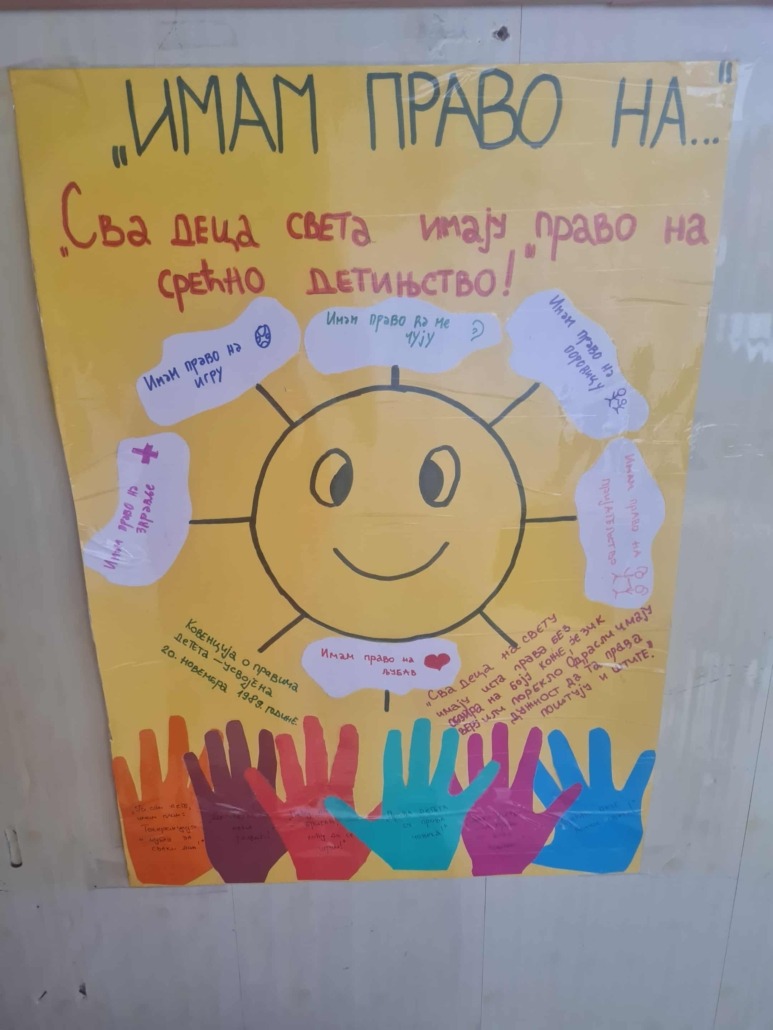 „ИМАМ ПРАВО НА..."
„Сва деца света имају „право на
срећно детињство!"
Имам право на
игру
Имам право да ме
чују
Имам право на
породицу
Имам право на
здравље
Имам право на
пријатељство
Имам право на
љубав
Ковенција о правима
детета - усвојена
20. новембра 1989. године
"Сва деца на свету
имају иста права без
обзира на боју коже, језик
веру или порекло. Одрасли имају
дужност да та права
поштују и штите."